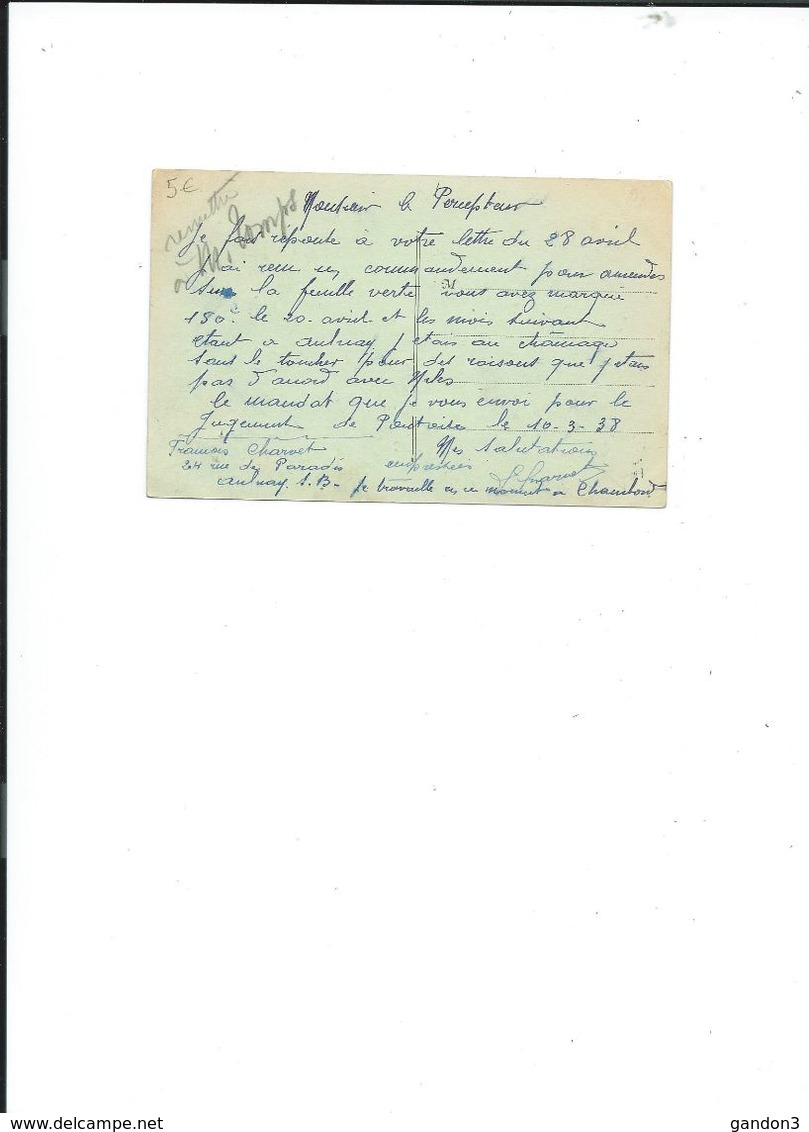 5€
remettre
à Mr. Temps
Monsieur le Percepteur
Je fais reponse à votre lettre du 28 avril
J'ai recu un commandement pour amendes
M
Sur la feuille verte vous avez marquée
180 le 20 avril et les mois suivant
etant a aulnay j etais au chômage
sans le toucher pour des raisons que j etais
pas d'acord avec
le mandat que je vous envoi pour le
Jugement de Pontoise le 10-3-38
Francois Charvet Mes Salutations
24 rue de Paradis empressées
Charvet
aulnay s. B- Je travaille en ce moment a Chambord
delcampe.net
gandon3